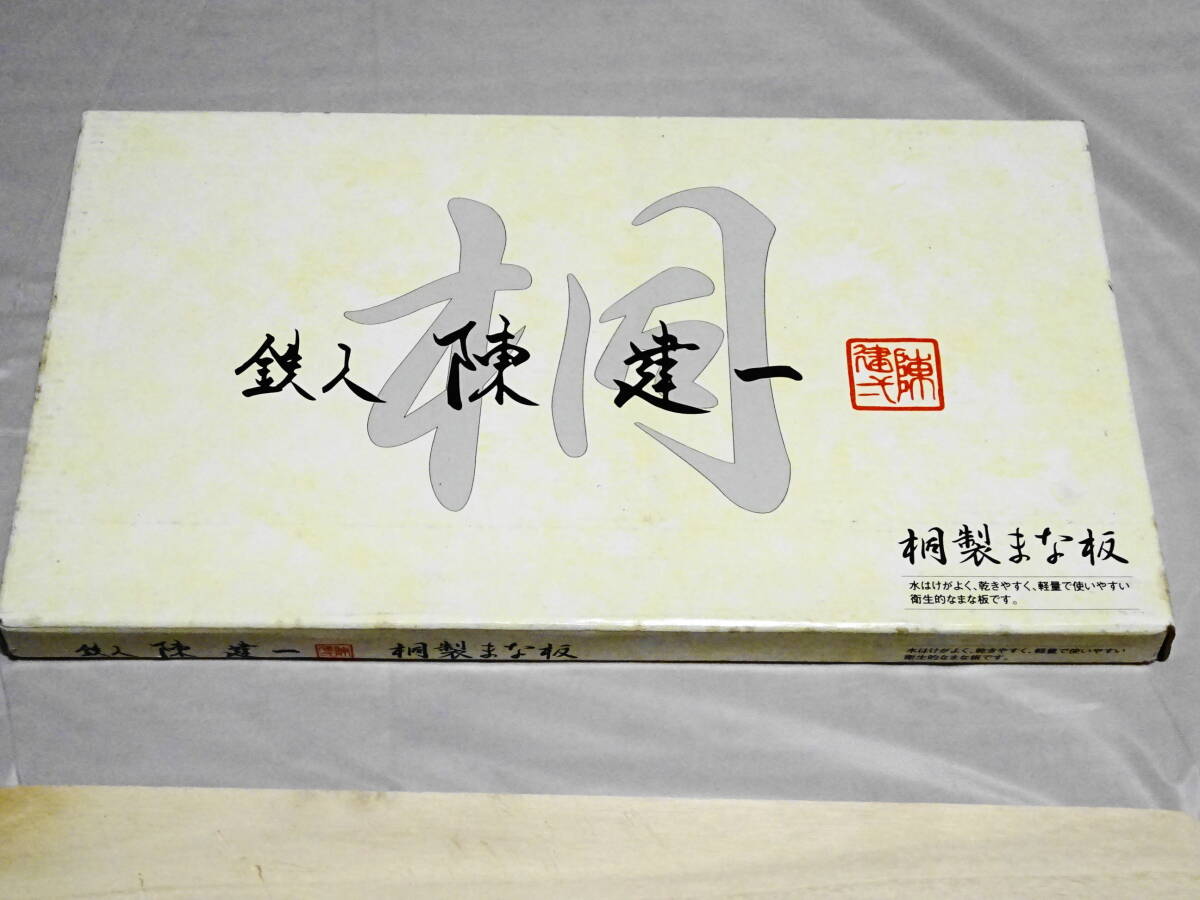 桐
鉄人 陳 建一
陳建一
桐製まな板
水はけがよく、乾きやすく、軽量で使いやすい
衛生的なまな板です。
鉄人 陳 建一 桐製まな板
水はけがよく、乾きやすく、軽量で使いやすい
衛生的なまな板です。